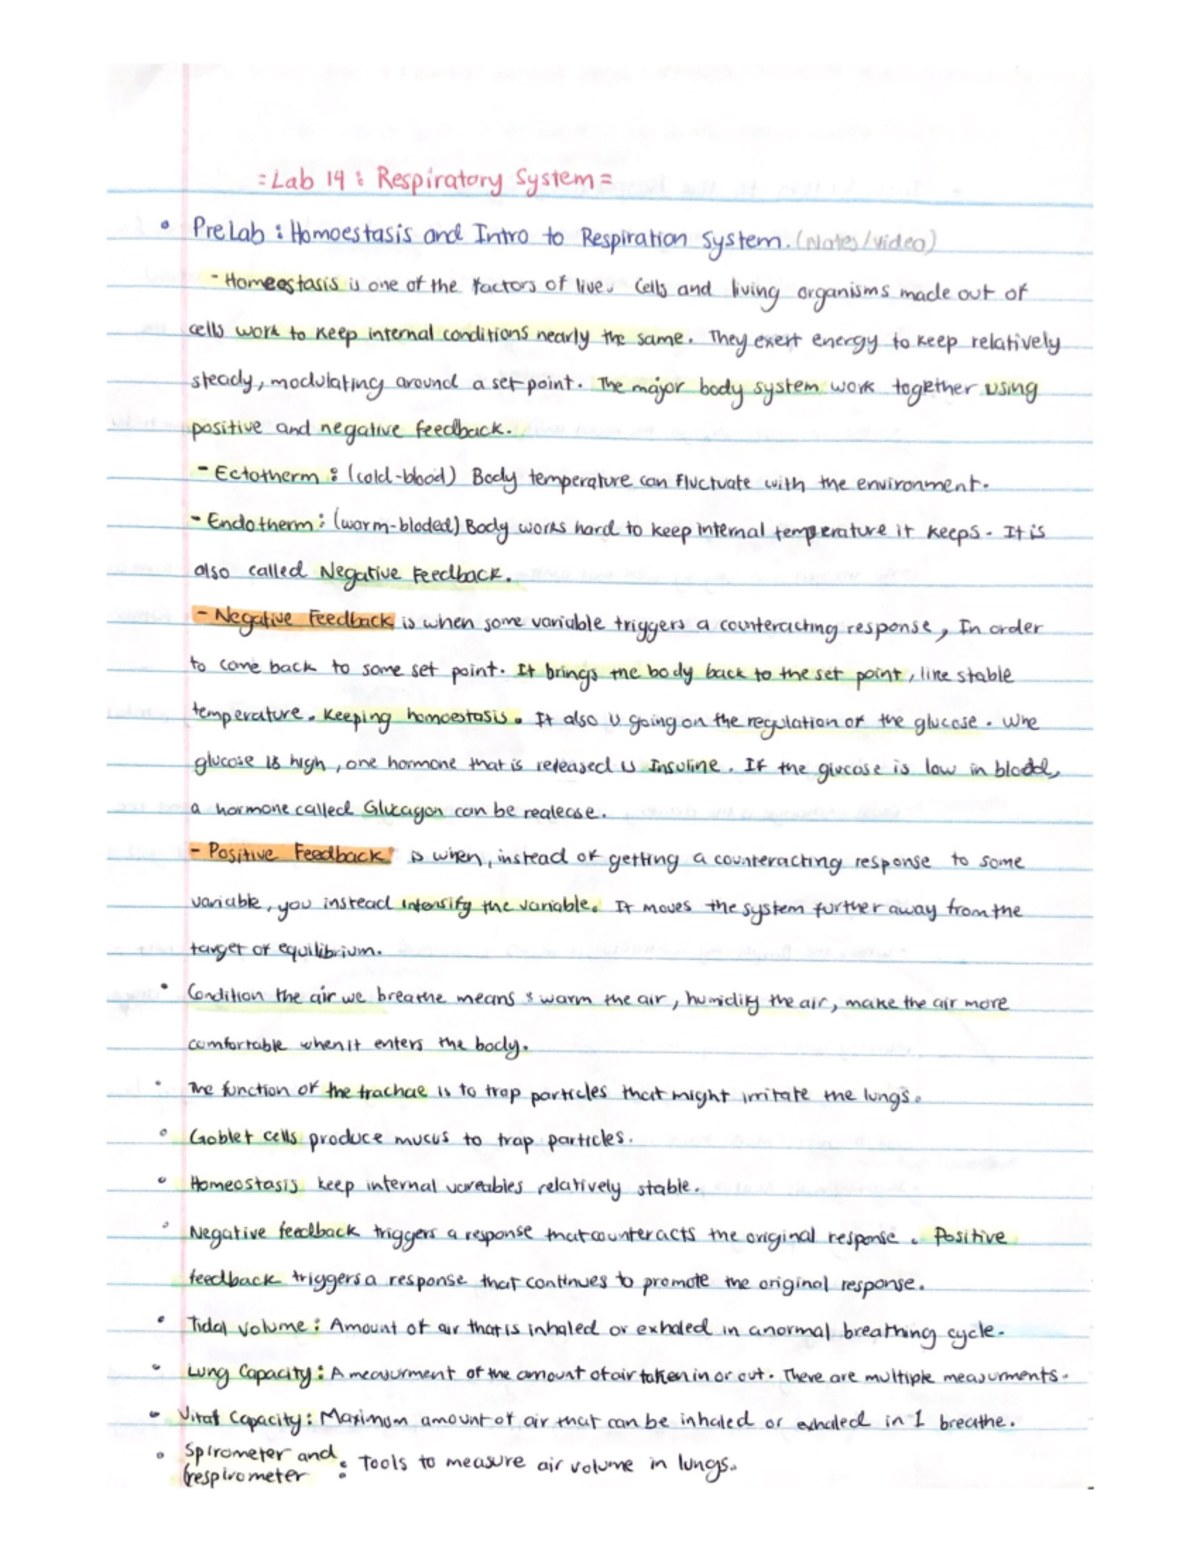 =Lab 14: Respiratory System=
• PreLab: Homoestasis and Intro to Respiration System. (Notes/video)
- Homeostasis is one of the factors of live. Cells and living organisms made out of
cells work to keep internal conditions nearly the same. They exert energy to keep relatively
steady, modulating around a set point. The major body system work together using
positive and negative feedback.
- Ectotherm: (cold-blood) Body temperature can fluctuate with the environment.
- Endotherm: (warm-bloded) Body works hard to keep internal temperature it keeps. It is
also called Negative Feedback.
- Negative Feedback is when some variable triggers a counteracting response, In order
to come back to some set point. It brings the body back to the set point, like stable
temperature. Keeping homoestasis. It also is going on the regulation of the glucose. Whe
glucose is high, one hormone that is released is Insuline. If the glucose is low in blood,
a hormone called Glucagon can be realease.
- Positive Feedback is when, instead of getting a counteracting response to some
variable, you instead intensify the variable. It moves the system further away from the
target of equilibrium.
• Condition the air we breathe means: warm the air, humidify the air, make the air more
comfortable when it enters the body.
• The function of the trachae is to trap particles that might irritate the lungs.
• Goblet cells produce mucus to trap particles.
• Homeostasis keep internal vareables relatively stable.
• Negative feedback triggers a response that counteracts the original response. Positive
feedback triggers a response that continues to promote the original response.
• Tidal volume: Amount of air that is inhaled or exhaled in a normal breathing cycle.
• Lung Capacity: A measurment of the amount of air taken in or out. There are multiple measurments.
• Vital Capacity: Maximum amount of air that can be inhaled or exhaled in 1 breathe.
• Spirometer and respirometer: Tools to measure air volume in lungs.